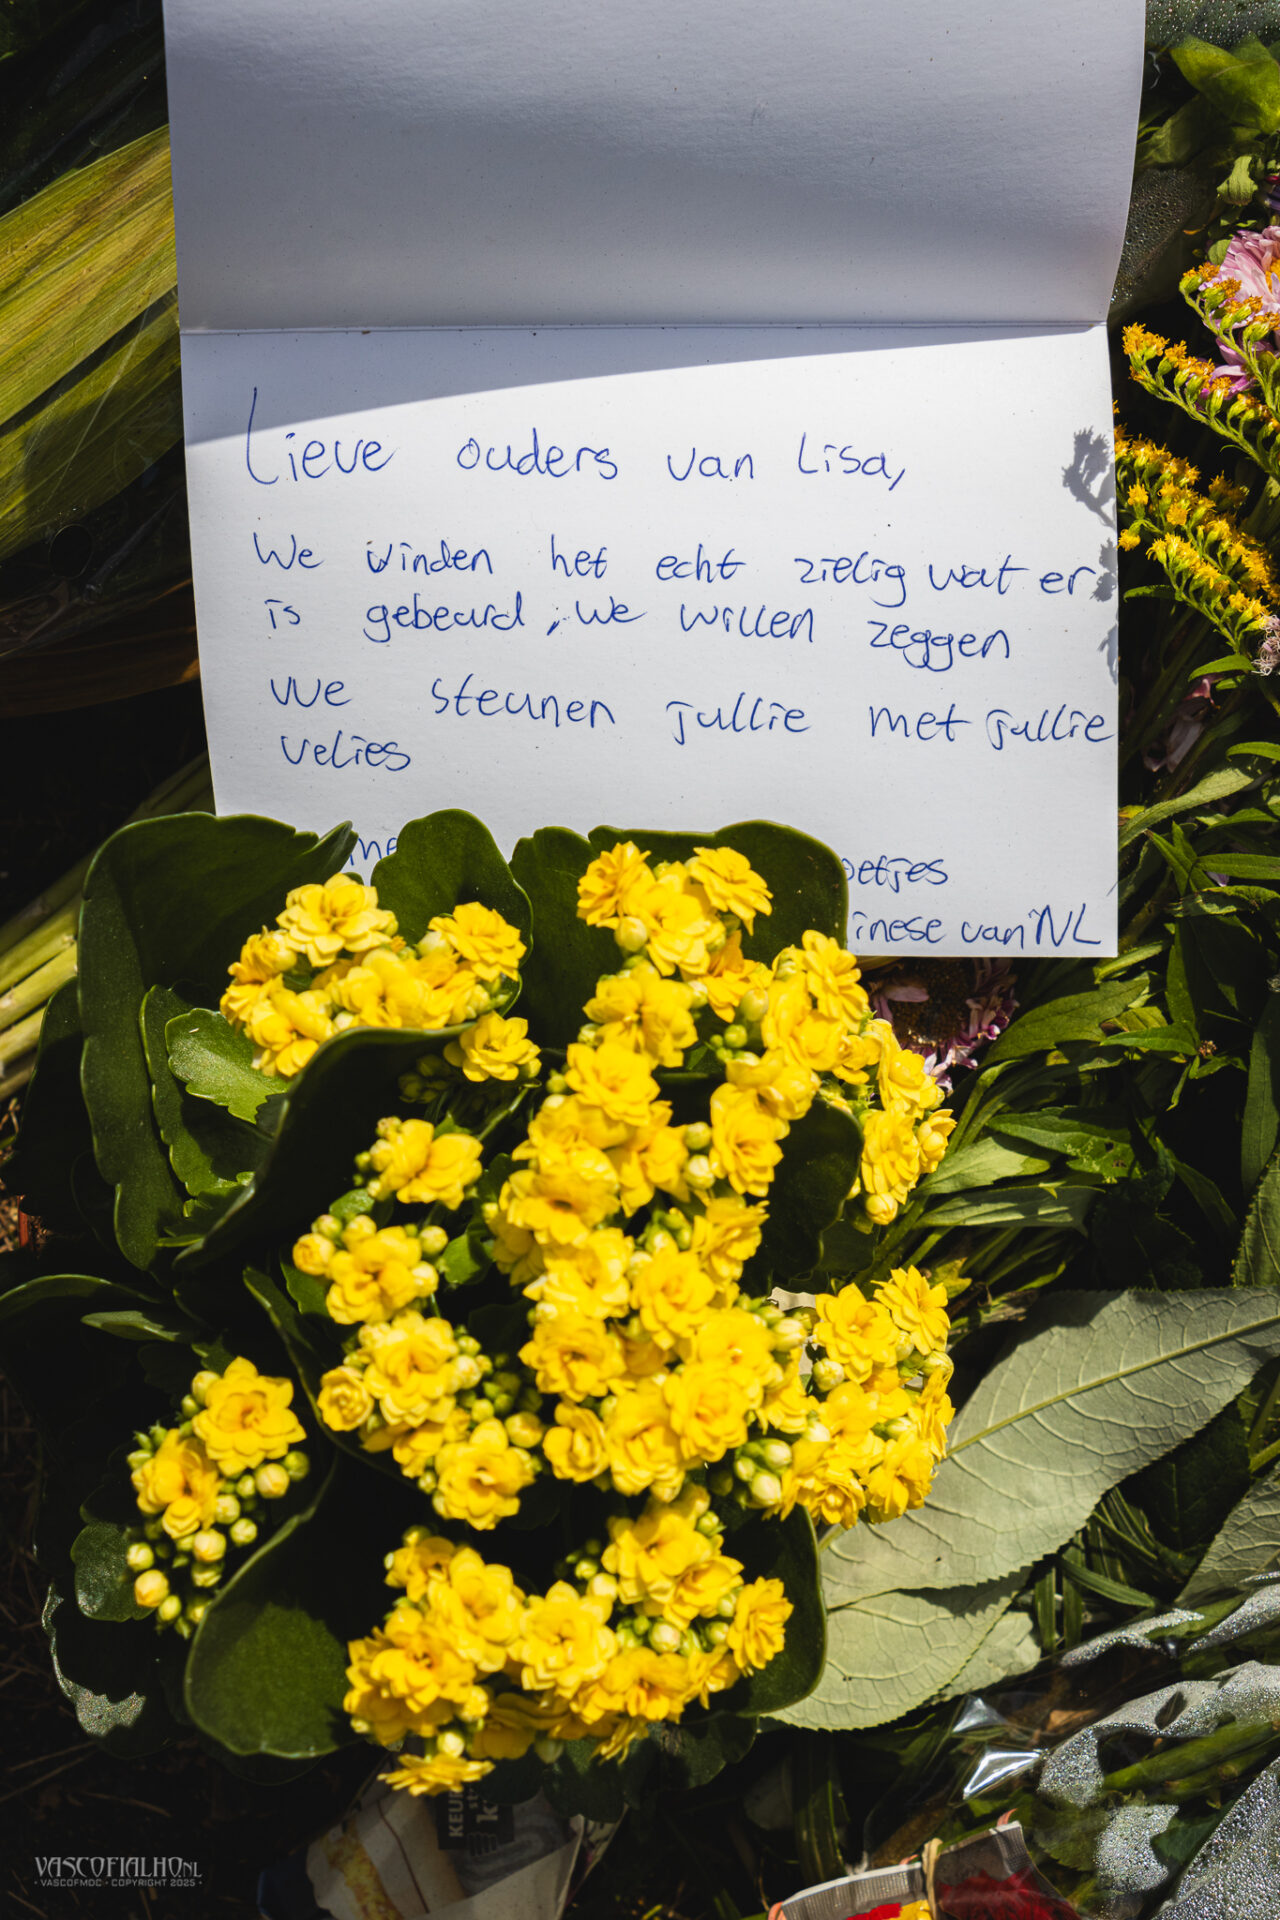 Lieve ouders van Lisa,
We vinden het echt zielig wat er
is gebeurd, we willen zeggen
we steunen jullie met jullie
velies
inese van NL
VASCOFIALHO.NL
VASCOFMDC · COPYRIGHT 2025